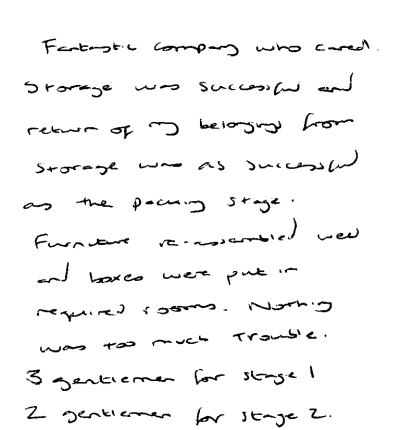 Fantastic company who cared.
Storage was successful and
return of my belongings from
storage was as successful
as the packing stage.
Furniture re-assembled well
and boxes were put in
required rooms. Nothing
was too much trouble.
3 gentlemen for stage 1
2 gentlemen for stage 2.